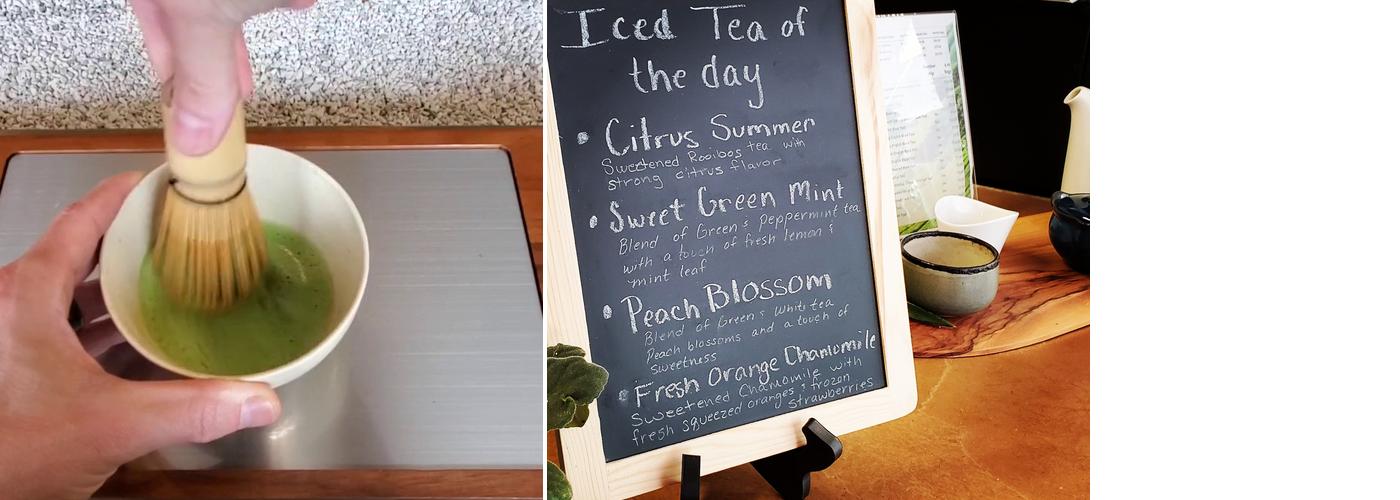 Iced Tea of
the day
• Citrus Summer
Sweetened Rooibos tea with
strong citrus flavor
• Sweet Green Mint
Blend of Green & Peppermint tea
with a touch of fresh lemon &
mint leaf
• Peach Blossom
Blend of Green & White tea
Peach blossoms and a touch of
sweetness
• Fresh Orange Chamomile
Sweetened Chamomile with
fresh squeezed oranges & frozon
strawberries